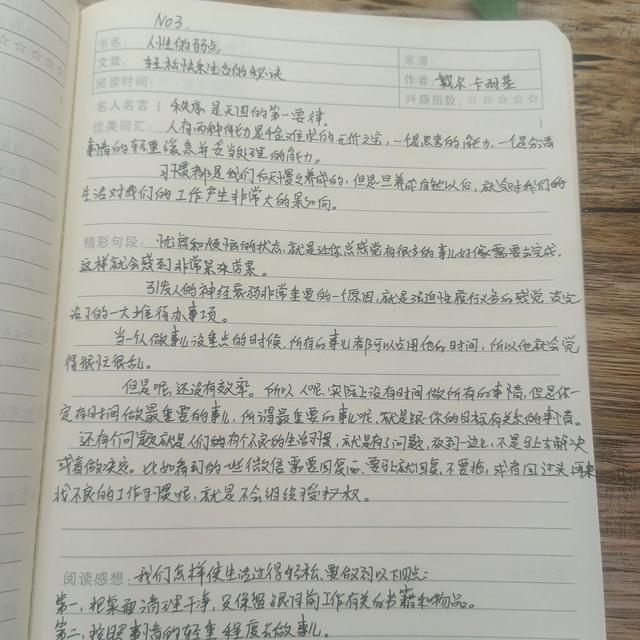 NO3.
书名: 人性的弱点
文章: 轻松快乐生活的秘诀 来源:
阅读时间: 作者: 戴尔·卡耐基
兴趣指数: ☆☆☆☆☆
名人名言 ( 秩序是天国的第一要律。 )
优美词汇: 人有两种能力是千金难求的无价之宝,一是思考的能力,一是分清
事情的轻重缓急并妥当处理的能力。
习惯都是我们后天慢慢养成的,但是一旦养成自然以后,就会对我们的
生活对我们的工作产生非常大的影响。
精彩句段: 忧虑和烦恼的状态,就是让你总感觉有很多的事儿好像需要去完成,
这样就会感到非常紧张劳累。
引发人的神经衰弱非常重要的一个原因,就是强迫性履行义务的感觉,
的一大堆待办事项。
当一个人做事儿没重点的时候,所有的事儿都可以占用他的时间,所以他就会觉
得很忙很乱。
但是呢,还没有效率。所以人呢,实际上没有时间做所有的事情,但是你一
定有时间做最重要的事儿,所谓最重要的事儿呢,就是跟你的目标有关系的事情。
还有个问题就是人们的有个不良的生活习惯,就是有了问题,放到一边儿,不是马上去解决
或者做决定。比如看到的一些微信需要回复,要马上就回复,不要拖,或者回过头再来
找不良的工作习惯呢,就是不会组织授权。
阅读感想: 我们怎样使生活过得轻松,要做到以下四点:
第一,把桌面清理干净,只保留跟目前工作有关的书籍和物品。
第二,按照事情的轻重程度去做事儿。